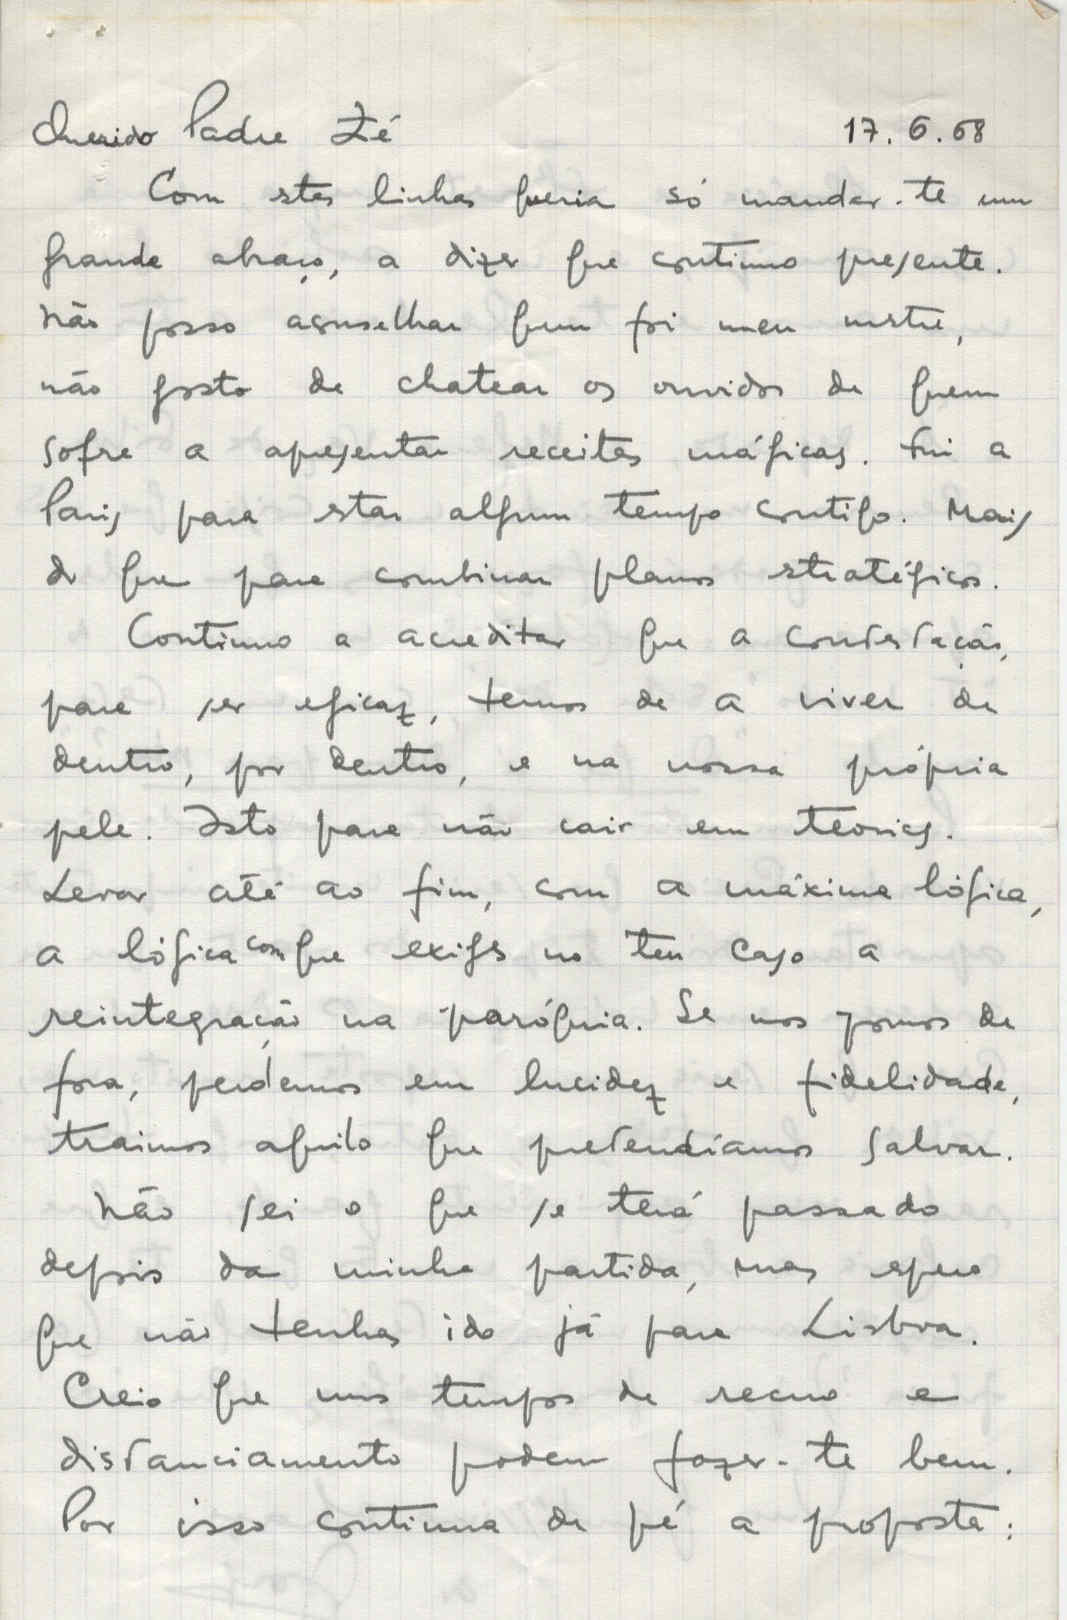 Querido Padre Zé 17.6.68
Com estas linhas queria só mandar-te um
grande abraço, a dizer que continuo presente.
Não posso aconselhar quem foi meu mestre,
não gosto de chatear os ouvidos de quem
sofre a apresentar receitas mágicas. Fui a
Paris para estar algum tempo contigo. Mais
do que para combinar planos estratégicos.
Continuo a acreditar que a contestação,
para ser eficaz, temos de a viver de
dentro, por dentro, e na nossa própria
pele. Isto para não cair em teorias.
Levar até ao fim, com a máxima lógica,
a lógica com que exiges no teu caso a
reintegração na paróquia. Se nos pomos de
fora, perdemos em lucidez e fidelidade,
traimos aquilo que pretendíamos salvar.
Não sei o que se terá passado
depois da minha partida, mas espero
que não tenhas ido já para Lisboa.
Creio que uns tempos de recuo e
distanciamento podem fazer-te bem.
Por isso continua de pé a proposta: